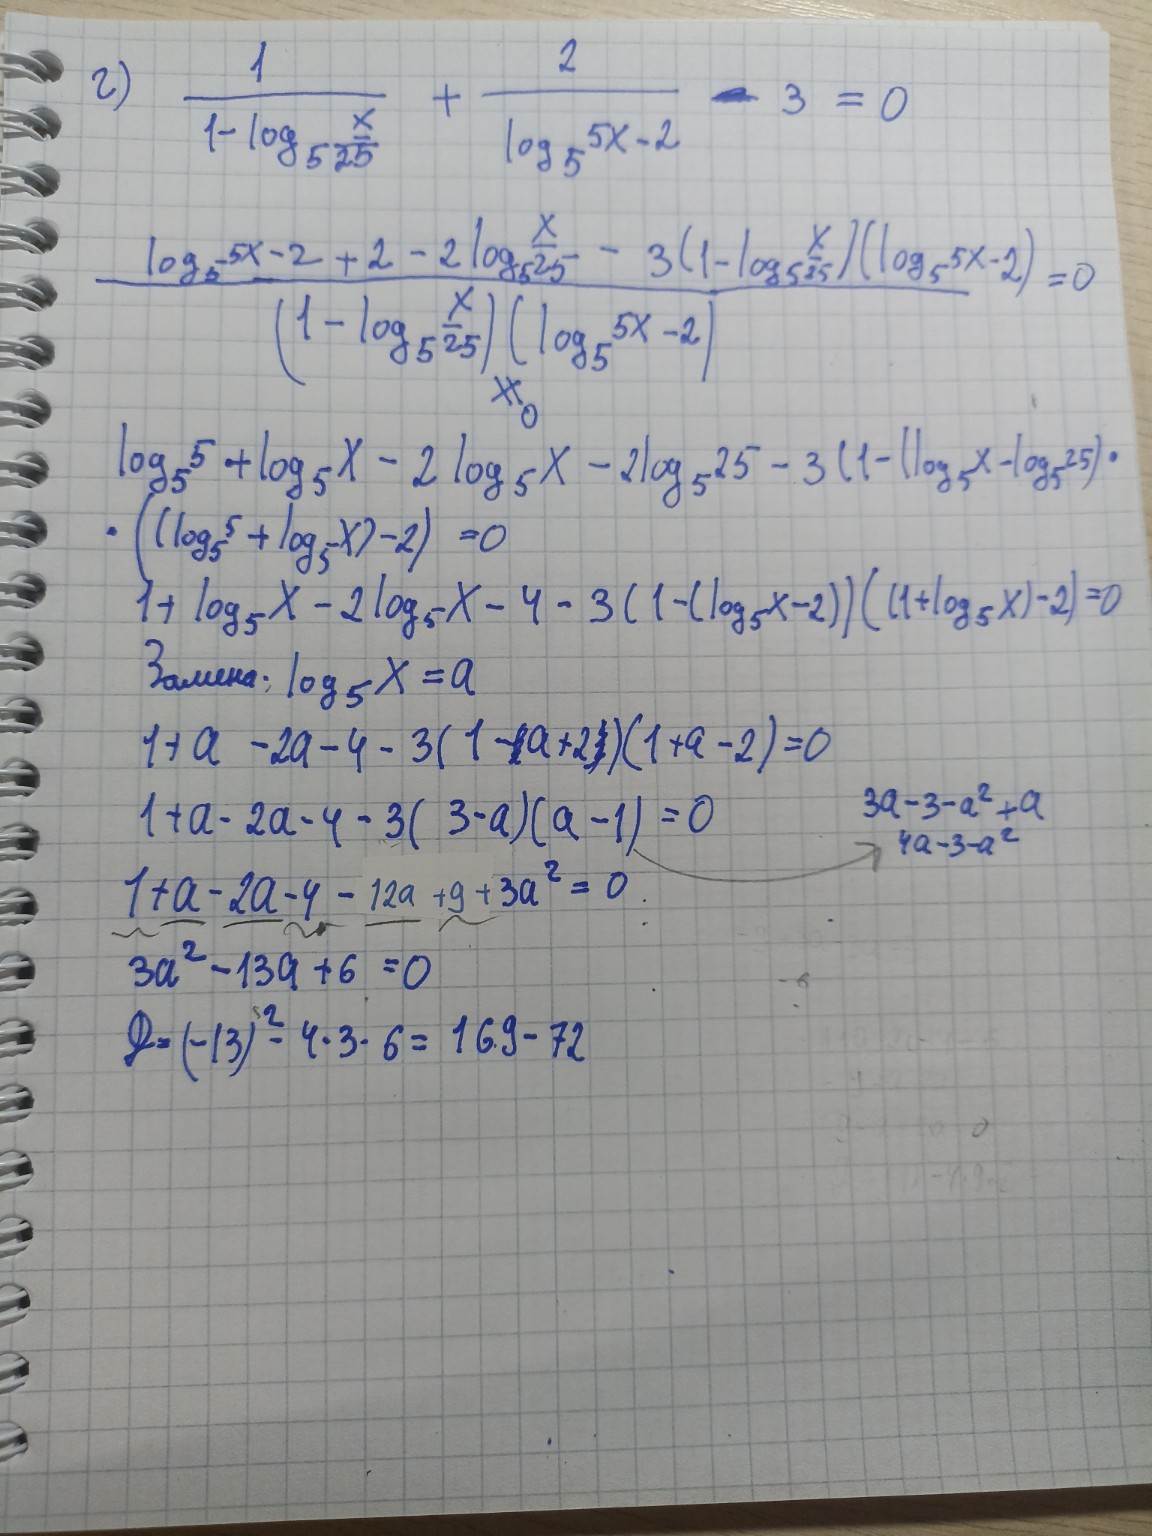 г) 1/(1-log₅ x/25) + 2/(log₅ 5x-2) - 3 = 0
(log₅ 5x-2 + 2 - 2log₅ x/25 - 3(1-log₅ x/25)(log₅ 5x-2))/((1-log₅ x/25)(log₅ 5x-2)) = 0
≠0
log₅ 5 + log₅ x - 2log₅ x - 2log₅ 25 - 3(1-(log₅ x-log₅ 25)·
·((log₅ 5 + log₅ x)-2) = 0
1+ log₅ x - 2log₅ x - 4 - 3(1-(log₅ x-2))((1+log₅ x)-2)=0
Замена: log₅ x = a
1+a -2a-4-3(1-a+2)(1+a-2)=0
1+a-2a-4-3(3-a)(a-1)=0
3a-3-a²+a
4a-3-a²
1+a-2a-4-12a+9+3a²=0
3a²-13a+6=0
D=(-13)²-4·3·6=169-72